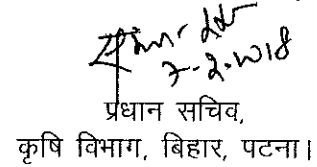 7-2-2018
प्रधान सचिव,
कृषि विभाग, बिहार, पटना।